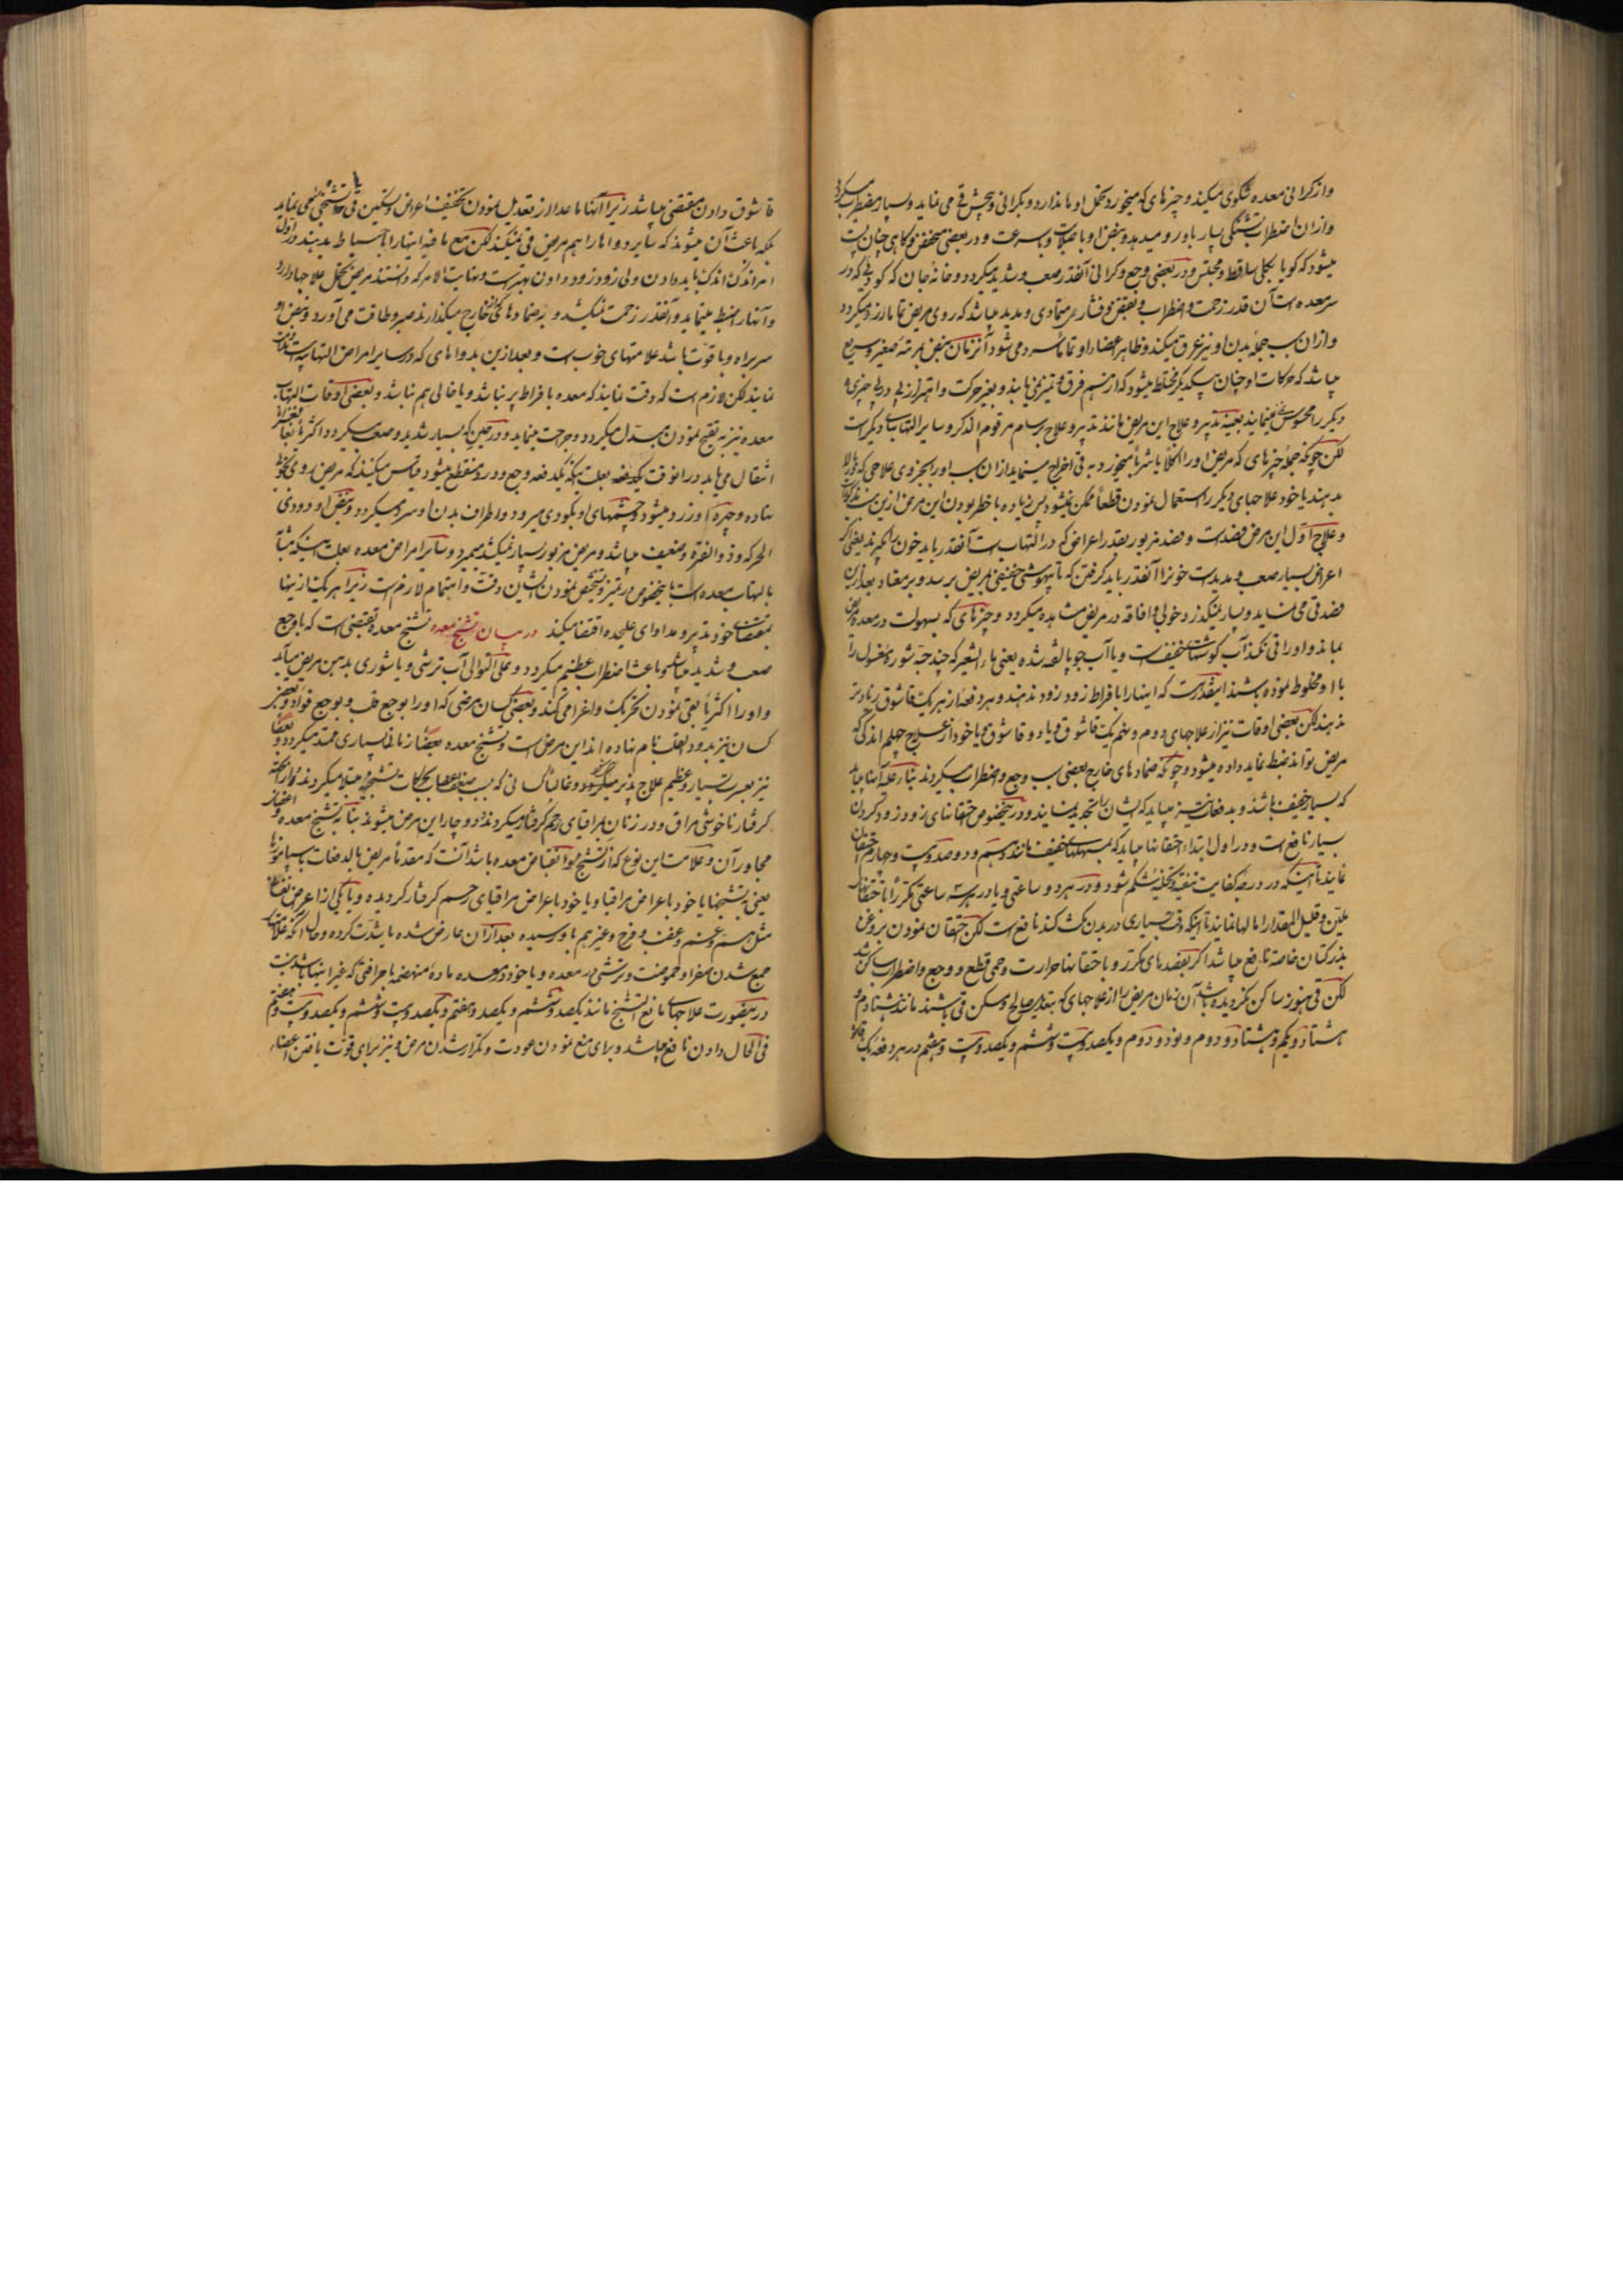 و از کرانی معده شکوی میکند و چیزهای که میخورد تحمل او ماندارد و بکرانی و پیچش قی می نماید و بسیار مضطرب میکردد
و ازان اضطراب تشنگی بسیار باو رو میدهد و نبض او با صلابت و با سرعت و در بعضی منخفض و کاهی چنان پست
میشود که کویا بکلی ساقط و محتبس و در بعضی وجع و کرانی آنقدر صعب و شدید میکردد و خانه جان که کودیی که در
سر معده است آن قدر زحمت و اضطراب و فشار می پدید میباشد که روی مریض تماما زرد میکردد
و ازان سبب جمله بدن او نیز عرق میکند و ظاهر اعضاء او تماما سرد می شود آنزمان نبض بمرتبه صغیر و سریع
میباشد که حرکات او چنان بیکدیکر مختلط میشود که از هم فرق و تمیز نمی یابد و بغیر حرکت و اهتزاز پی در پی چیزی
دیکر را محسوس نمینماید بعینه تدبیر و علاج این مریض مانند تدبیر و علاج برسام مرقوم الذکر و سایر التهابهای دیکر است
لکن چونکه جمله چیزهای که مریض او را اکلا یا شربا میخورد به قی اخراج مینماید ازان سبب او را بجزوی علاجی که
بدهند یا خود علاجهای دیکر را استعمال نمودن قطعا ممکن نمیشود پس زیاده با خطر بودن این مرض ازین سبب
و علاج اول این مرض فصد است و فصد مزبور بقدر اعراض که در التهاب است آنقدر باید خون بکیرند یعنی اکر
اعراض بسیار صعب و پدید است خونرا آنقدر باید کرفتن که تا بیهوشی خفیفی بمریض برسد و بر معتاد بعد ازین
فصد قی می نماید و بسیار نمیکذرد خوبی و افاقه در مریض مشاهده میکردد و چیزهای که بسهولت در معده
بماند و او را قی نکند آب کوشتهای خفیف است و یا آب جو پالفته شده یعنی ماء الشعیر که چند حبه شوره مغسول را
با او مخلوط نموده باشند اینقدر هست که اینها را با فراط زود زود ندهند و هر دفعه از هر یک قاشوق زیادتر
ندهند لکن بعضی اوقات نیز از علاجهای دوم و نهم یک قاشوق و یا دو قاشوق و یا خود از علاج چهلم اندکی که
مریض تواند ضبط نماید داده میشود و چونکه ضمادهای خارج بعضی سبب وجع و اضطراب میکردند بناء علیه اینها باید
که بسیار خفیف باشد و بدفعات نیز میباید که ایشان را تجدید نمایند و درین خصوص احتقانهای زود زود کردن
بسیار نافع است و در اول ابتداء احتقانها میباید که بمسهلهای خفیف مانند دو صد و بیست و چهارم احتقان
نمایند تا اینکه در درجه کفایت تنقیه و تخلیه شکم شود و در هر دو ساعتی و یا در هر سه ساعتی مکررا با احتقانهای
ملین و قلیل المقدار اماله نمایند تا اینکه وقت بسیاری در بدن مکث کند نافع است لکن احتقان نمودن بروغن
بذر کتان خاصة نافع میباشد اکر بفصدهای مکرر و با احتقانها حرارت و حمی قطع و وجع و اضطراب ساکن شد
لکن قی هنوز ساکن نکردیده باشد آن زمان مریض را از علاجهای که بتعدیل صالح و مسکن قی باشند مانند هشتادم و
هشتاد و یکم و هشتاد و دوم و نود و دوم و یکصد و بیست و ششم و یکصد و بیست و هفتم در هر دفعه یک
قاشوق دادن مقتضی میباشد زیرا اینها ماعدا از تعدیل نمودن تخفیف اعراض و تسکین قی و تشنجی می نماید
بلکه باعث آن میشوند که سایر دواها را هم مریض قی نمیکند لکن مع ما فیه اینها را با احتیاط بدهند در اول
امر اندک اندک باید دادن ولی زود زود دادن بهتر است و نهایت الامر که دانستند مریض تحمل علاجها دارد
و آنها را ضبط مینماید و آنقدر زحمت نمیکشد و بر ضمادهای خارج میکذارند صبر و طاقت می آورد و نبض او
سر براه و با قوت باشد علامتهای خوب است و بعد ازین بدواهای که در سایر امراض التهابیه
نمایند لکن لازم است که دقت نمایند که معده با فراط پر نباشد و یا خالی هم نباشد و بعضی اوقات التهاب
معده نیز به تقیح نمودن مبدل میکردد و جراحت مینماید و در حین که بسیار شدید و صعب میکردد اکثر یا
انتقال می یابد در انوقت یکدفعه بعلت اینکه یکدفعه وجع و درد منقطع میشود قیاس میکنند که مریض روی بخوبی
نهاده و چهره او زرد میشود و چشمهای او بکبودی میرود و اطراف بدن او سرد میکردد و نبض او دودی
الحرکه و ذو الفتره و ضعیف میباشد و مریض مزبور بسیار نمیکشد میمیرد و سایر امراض معده بعلت اینکه مشابه
بالتهاب معده است باینخصوص در تمیز و تشخیص نمودن ایشان دقت و اهتمام لازم است زیرا هر یک ازینها
بمقتضای خود تدبیر و مداوای علیحده اقتضا میکند در بیان تشنج معده تشنج معده تقبضی است که با وجع
صعب و شدید میباشد و باعث اضطراب عظیم میکردد و علی التوالی آب ترشی و یا شوری بدهن مریض میآید
و او را اکثریا بقی نمودن تحریک و اغرا می کند و بعضی کسان مرضی که او را بوجع قلب و بوجع فواد و بعضی
کسان نیز بدرد القلب نام نهاده اند این مرض است و تشنج معده بعضا زمان بسیاری ممتد میکردد و بعضا
نیز بعسرت بسیار و عظیم علاج پذیر میکردد و غالبا کسانی که بسبب ضعف اعصاب بحرکات تشنجیه مبتلا میکردند و از آنکه
کرفتار ناخوشی مراق و در زنان بمراقیای رحم کرفتار میکردند دوچار این مرض میشوند بنا بر تشنج معده و اعضای
مجاور آن و علامت این نوع که از تشنج و انقباض معده باشد آنست که مقدما مریض بالدفعات بسایر
یعنی به تشنجها یا خود باعراض مراقیا و یا خود باعراض مراقیای رحم کرفتار کردیده و یا یکی از اعراض نفسانی
مثل هم و غم و غضب و فرح و غیرهم باو رسیده بعد ازان عارض شده یا شدت کرده و حال آنکه علامات
جمع شدن صفرا و حموضت و ترشی در معده و یا خود در معده ماده منهضمه با جراقتی که غیر اینها باشد نیست
درینصورت علاجهای مانع التشنج مانند یکصد و ششم و یکصد و هفتم و یکصد و بیست و ششم و یکصد و بیست و هفتم
فی الحال دادن نافع میباشد و برای منع نمودن عودت و تکرار شدن مرض و نیز برای قوت یافتن اعضاء